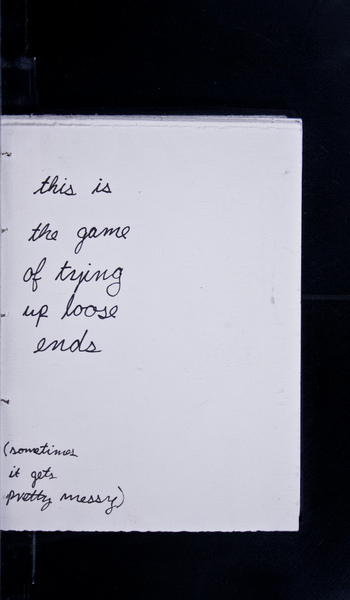 this is
the game
of trying
up loose
ends
(sometimes
it gets
pretty messy)